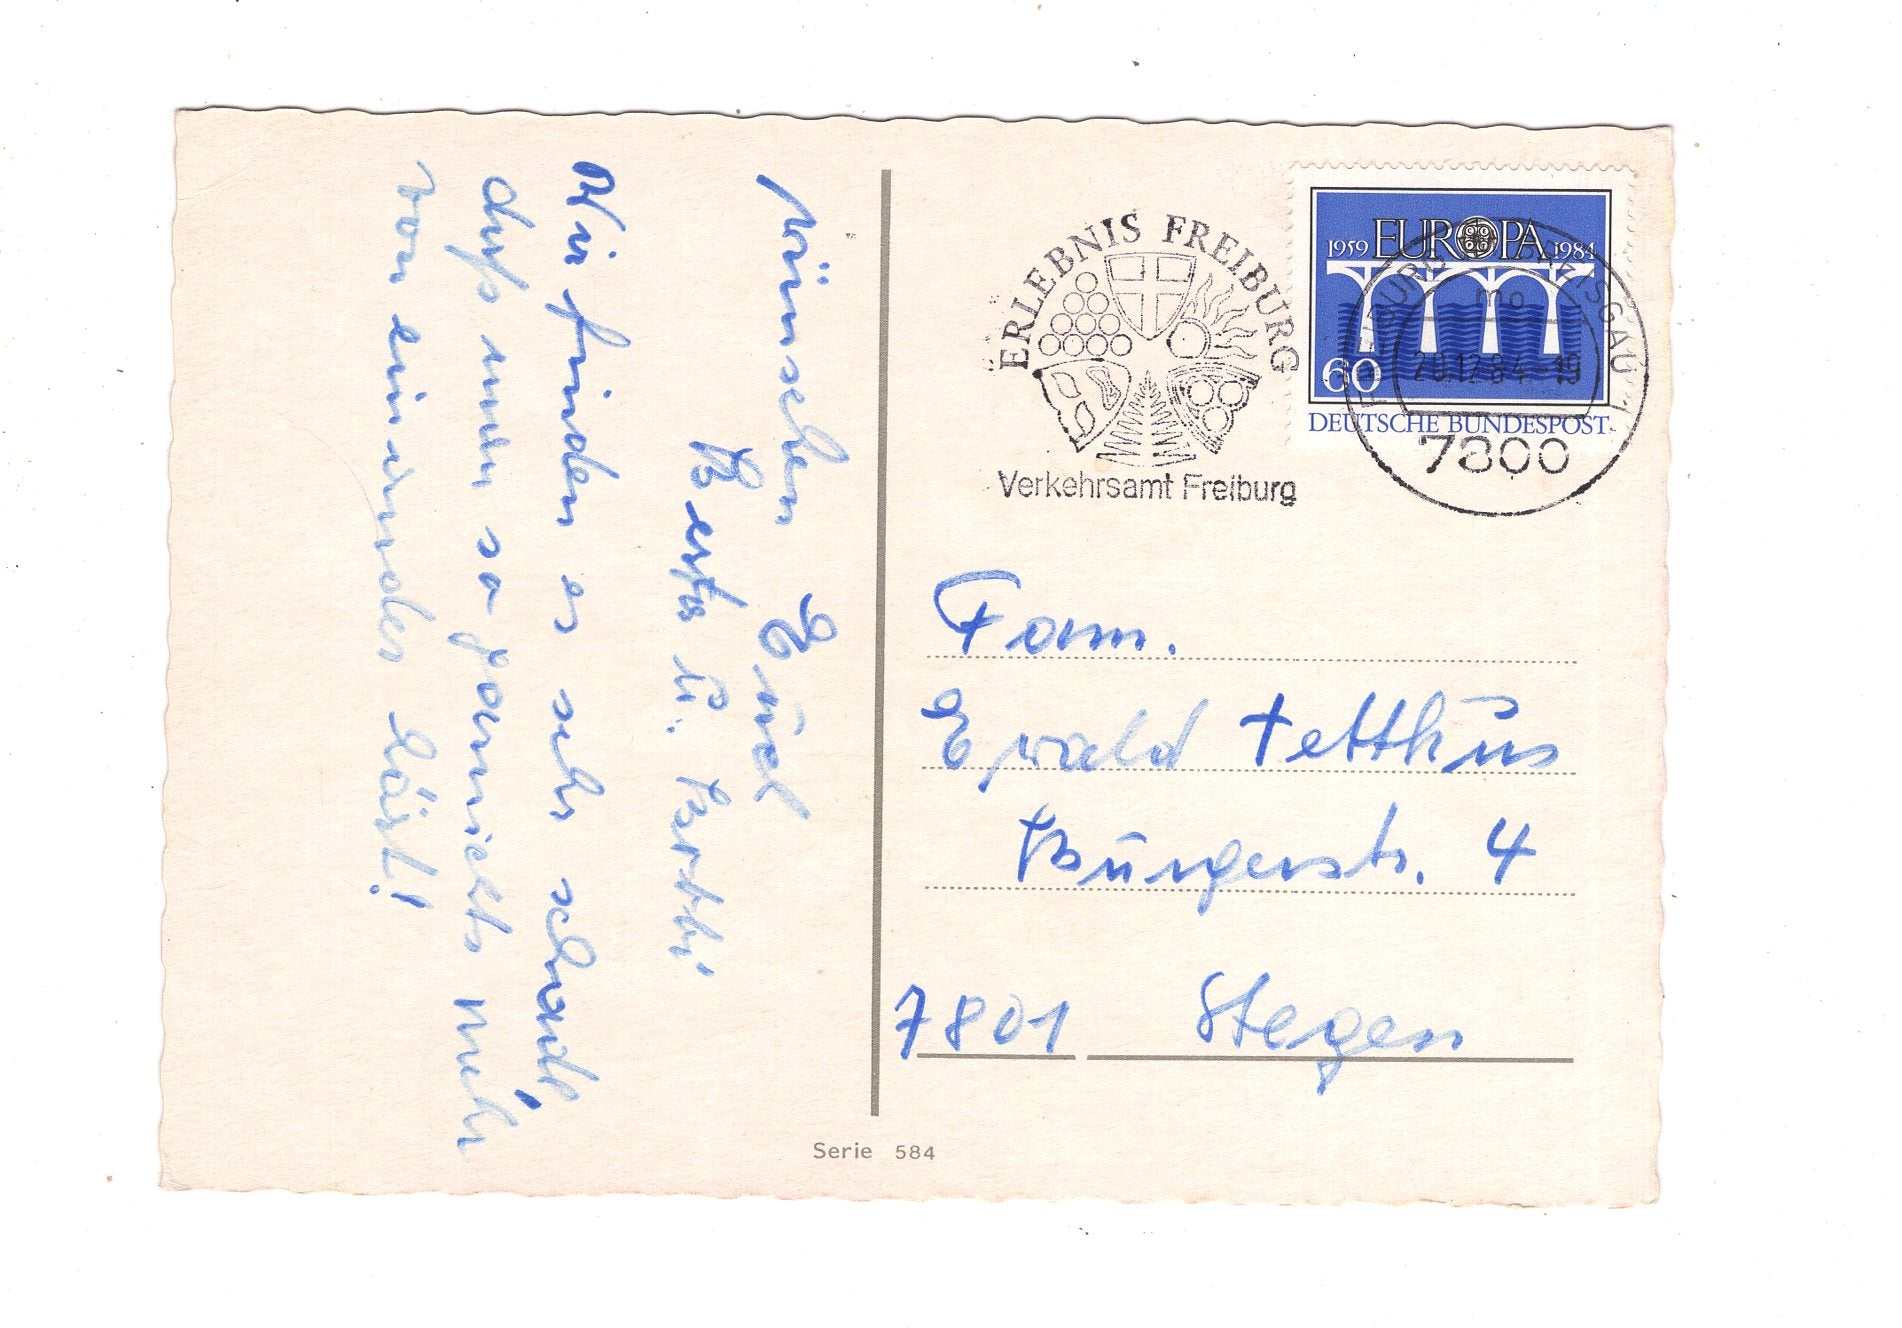 wünschen Euch
Berta u. Berthi
Wir finden es sehr schade,
daß man so garnichts mehr
von einander hört!
ERLEBNIS FREIBURG
Verkehrsamt Freiburg
1959 EUROPA 1984
60
DEUTSCHE BUNDESPOST
FREIBURG IM BREISGAU 1
mo
20.12.84-19
7800
Fam.
Ewald Tetthus
Bürgerstr. 4
7801 Stegen
Serie 584